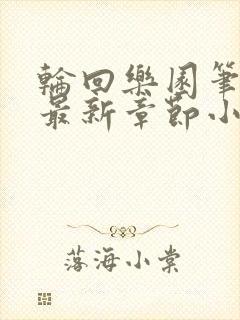 輪回樂園筆
最新章節小
落海小棠